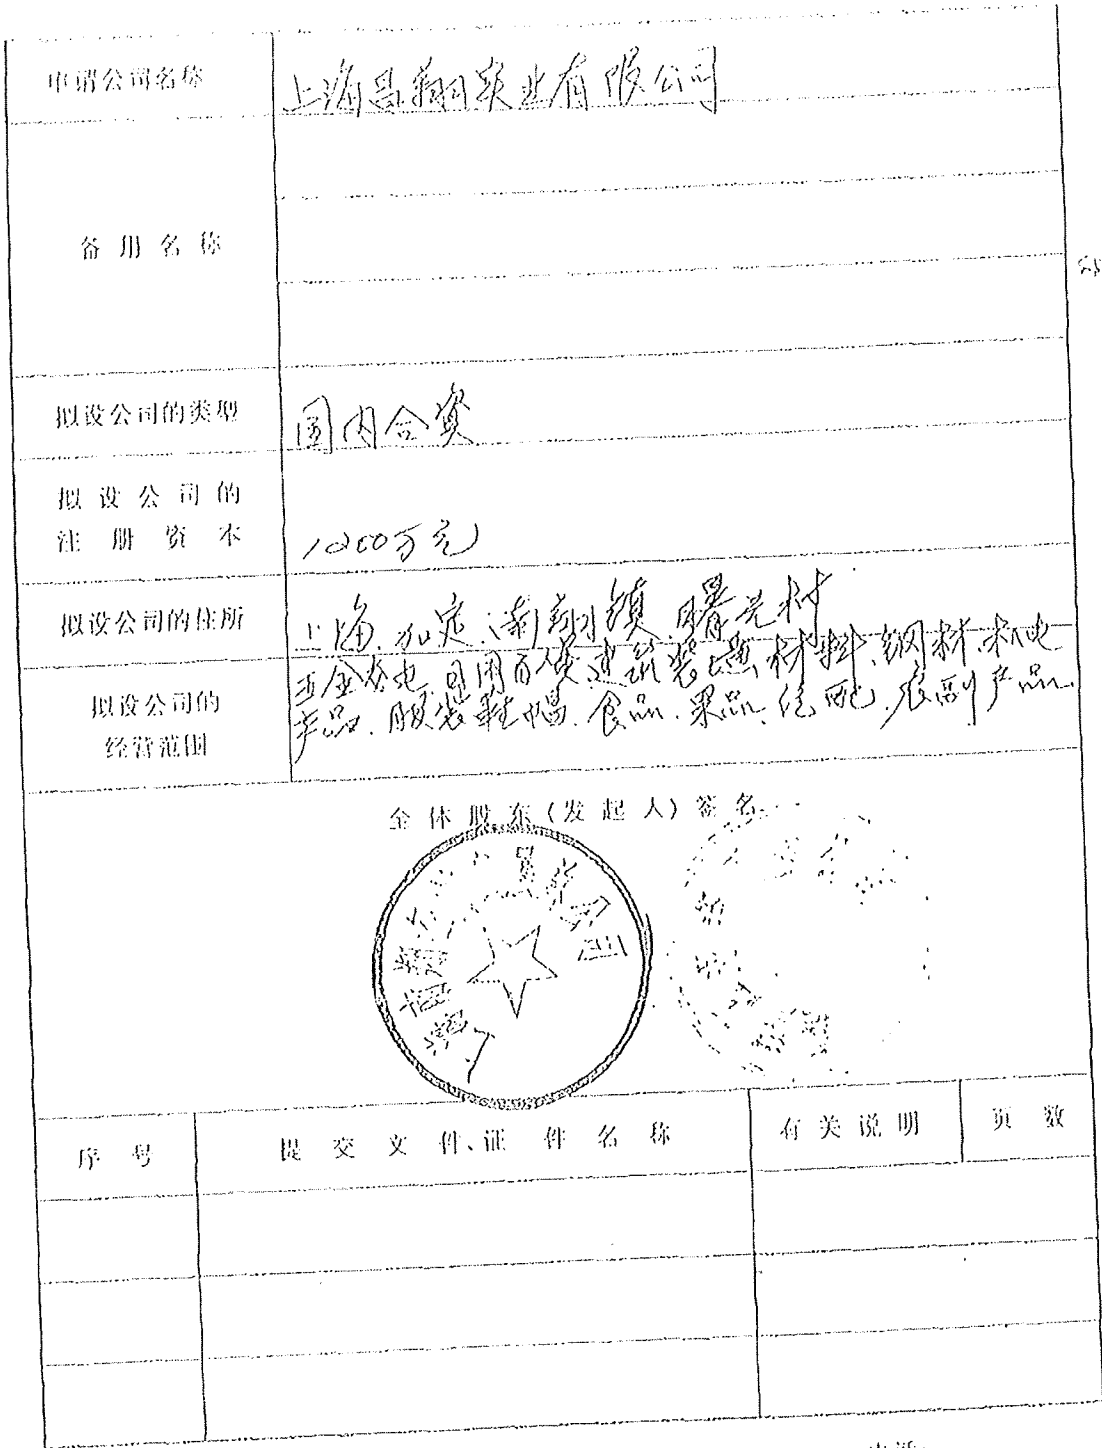 申请公司名称
上海昌翔实业有限公司
备用名称
拟设公司的类型
国内合资
拟设公司的
注册资本
1200万元
拟设公司的住所
上海.加定.南翔镇.曙光村
拟设公司的
经营范围
五金交电.日用百货.建筑装璜材料.钢材.机电
产品.服装鞋帽.食品.果品.农副产品
全体股东(发起人)签名
序号
提交文件、证件名称
有关说明
页数